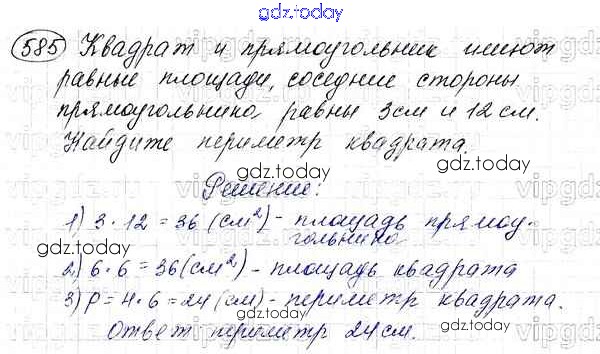 gdz.today
585 Квадрат и прямоугольник имеют
равные площади, соседние стороны
прямоугольника равны 3см и 12см.
Найдите периметр квадрата.
gdz.today
Решение:
1) 3·12=36(см²) - площадь прямоу-
гольника
gdz.today
2) 6·6=36(см²) - площадь квадрата
3) P=4·6=24(см) - периметр квадрата.
Ответ: периметр 24см.
gdz.today